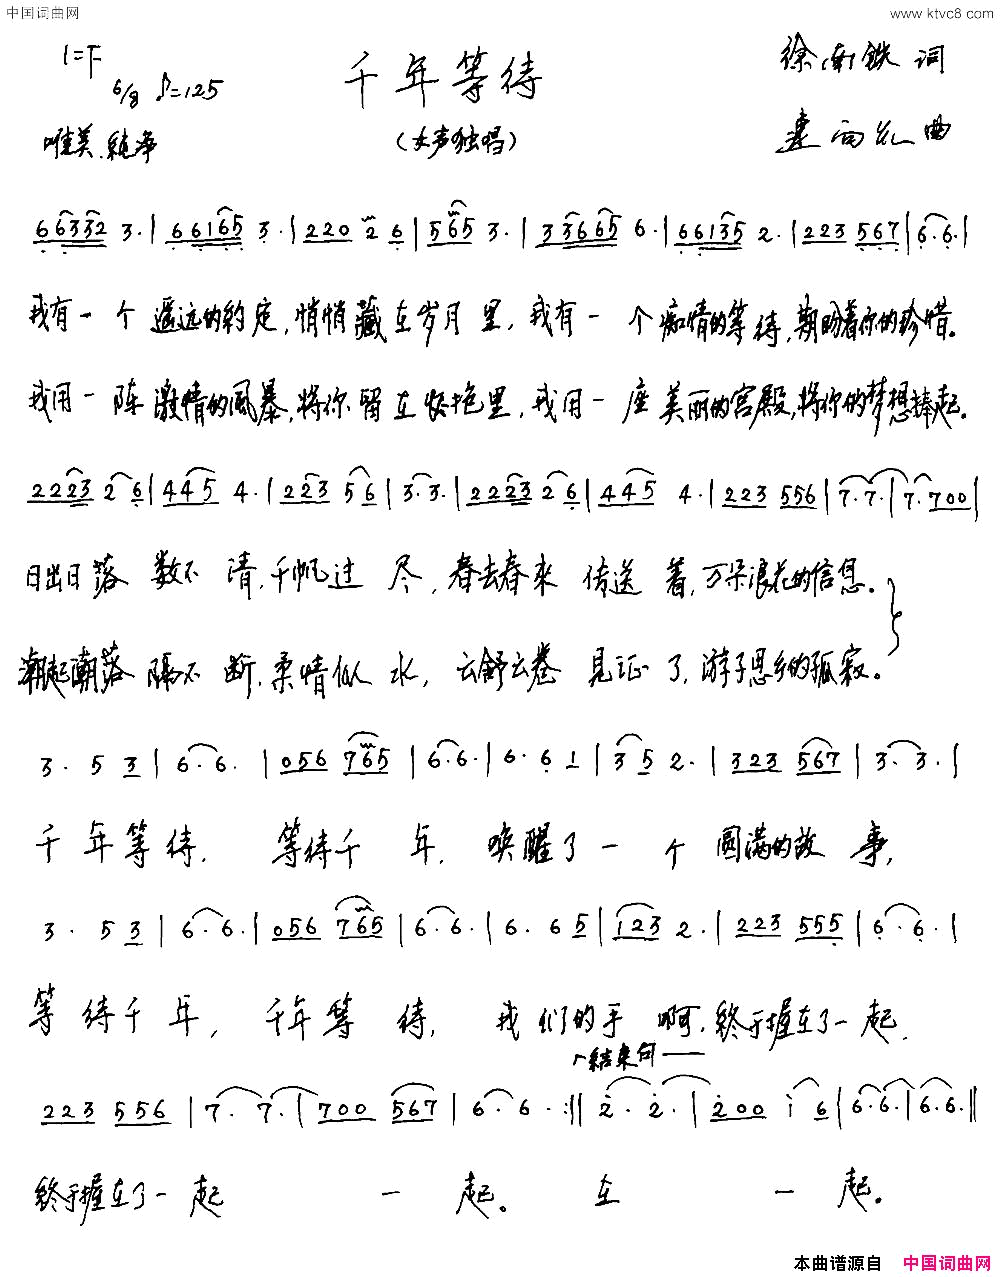 中国词曲网 www.ktvc8.com
1=F 6/8 ♪=125
千年等待
徐南铁 词
唯美、纯净
(女声独唱)
曲
66332 3·|66165 3·|220 2 6|565 3·|336665 6·|66135 2·|223 567|6·6·|
我有一个遥远的约定,悄悄藏在岁月里,我有一个痴情的等待,期盼着你的珍惜。
我用一阵激情的风暴,将你留在怀抱里,我用一座美丽的宫殿,将你的梦想捧起。
2223 2 6|445 4·|223 56|3·3·|2223 26|445 4·|223 556|7·7·|7·700|
日出日落数不清,千帆过尽,春去春来传送着,万朵浪花的信息。
潮起潮落隔不断,柔情似水,云舒云卷见证了,游子思乡的孤寂。
3· 5 3|6·6·|056 765|6·6·|6·6 1|3 5 2·|323 567|3·3·|
千年等待,等待千年,唤醒了一个圆满的故事,
3· 5 3|6·6·|056 765|6·6·|6·6 5|123 2·|223 555|6·6·|
等待千年,千年等待,我们的手啊,终于握在了一起,
结束句
223 556|7·7·|700 567|6·6·:‖2·2·|200 1 6|6·6·|6·6·‖
终于握在了一起 一起。在一起。
本曲谱源自 中国词曲网